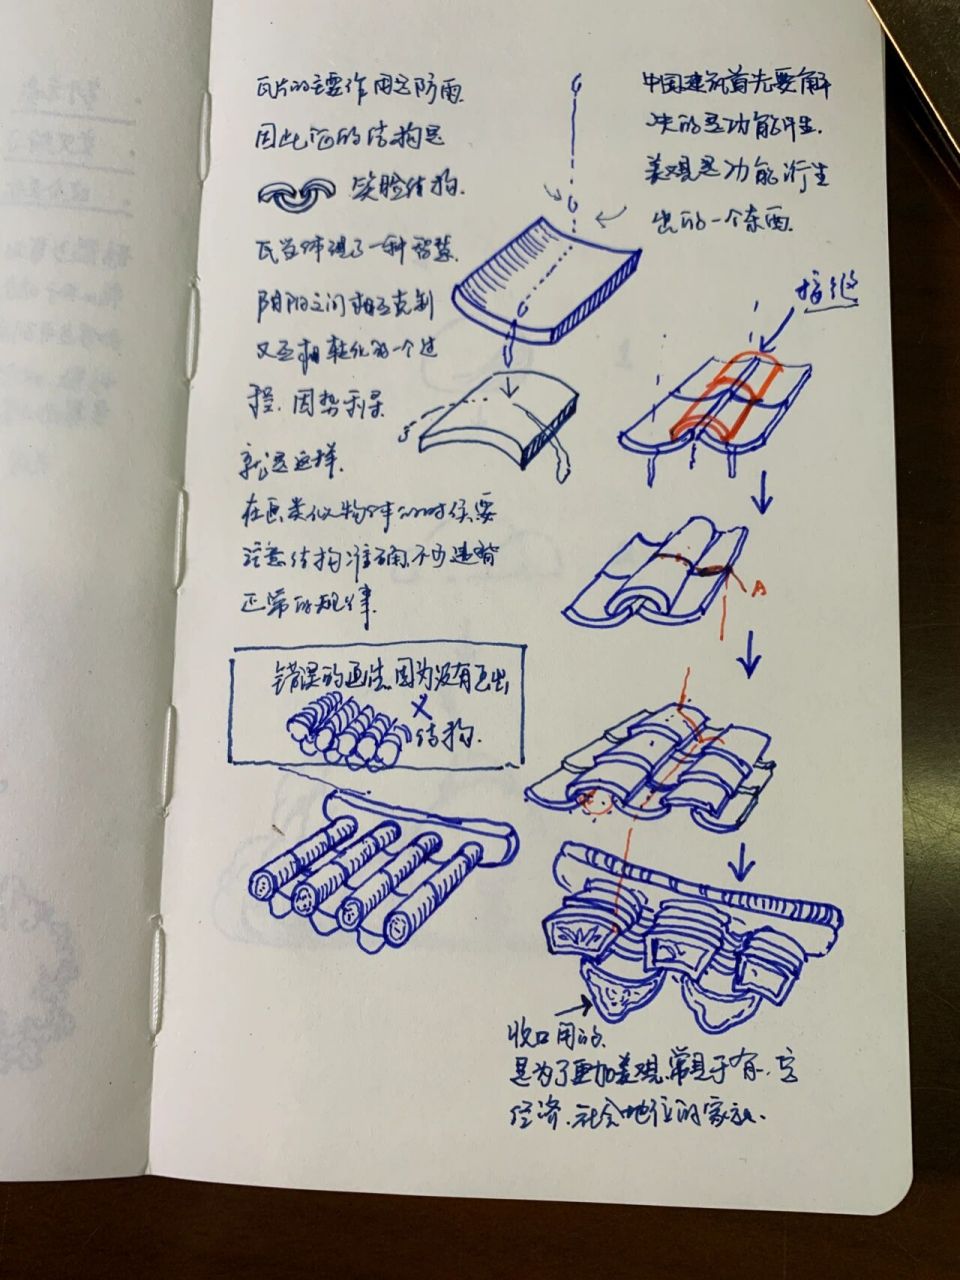 瓦片的主要作用是防雨
因此它的结构是
笑脸结构.
瓦当体现了一种智慧.
阴阳之间相互克制
又互相转化的一个过
程. 因势利导
就是这样.
在画类似物体的时候要
注意结构准确,不可违背
正常的规律.
错误的画法,因为没有画出
X
结构.
中国建筑首先要解
决的是功能衍生.
美观是功能衍生
出的一个东西.
接缝
A
收口用的.
是为了更加美观,常见于有一定
经济.社会地位的家族.